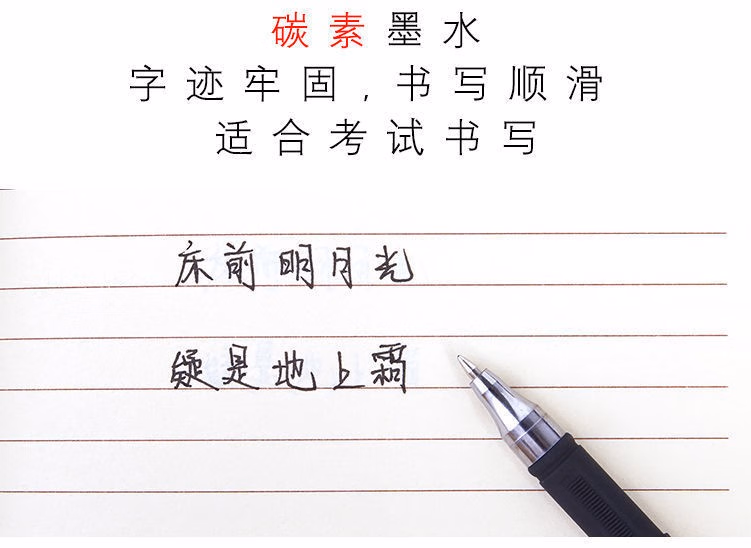 碳素墨水
字迹牢固,书写顺滑
适合考试书写
床前明月光
疑是地上霜